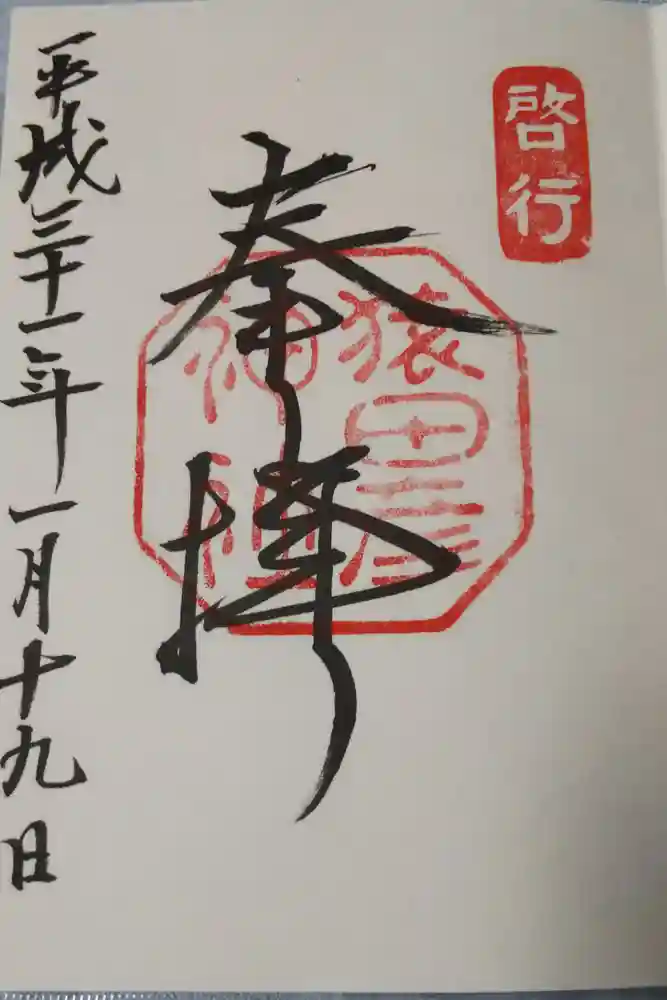 啓行
奉拝
猿田彦
神社
平成三十一年一月十九日